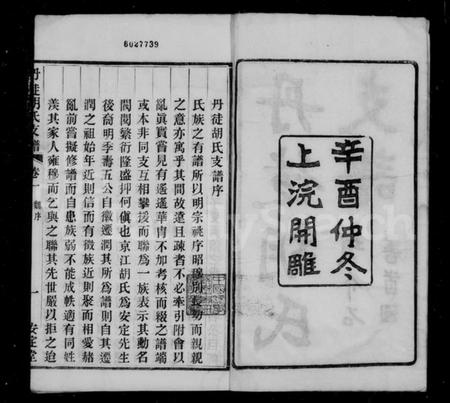 6027739
辛酉仲冬
上浣開雕
丹徒胡氏支譜序
氏族之有譜所以明宗祧序昭穆別長幼而親親
之意亦寓乎其間故遠且疎者不必牽引附會以
亂眞實嘗見有遙遙華胄不加考核而綴之譜端
或本非同支互相攀援而聯為一族表示其動名
閥閱繁衍隆盛抑何偵也京江胡氏為安定先生
後裔明季壽五公自徽遷潤其所為譜則自其遷
潤之祖始年近則信而有徵族近則聚而相愛赭
亂前嘗擬修譜而自患族弱不能成帙適有同姓
羨其家人雍穆而乞與之聯其先世嚴以拒之迨
丹徒胡氏支譜
卷一
序
一
安定堂